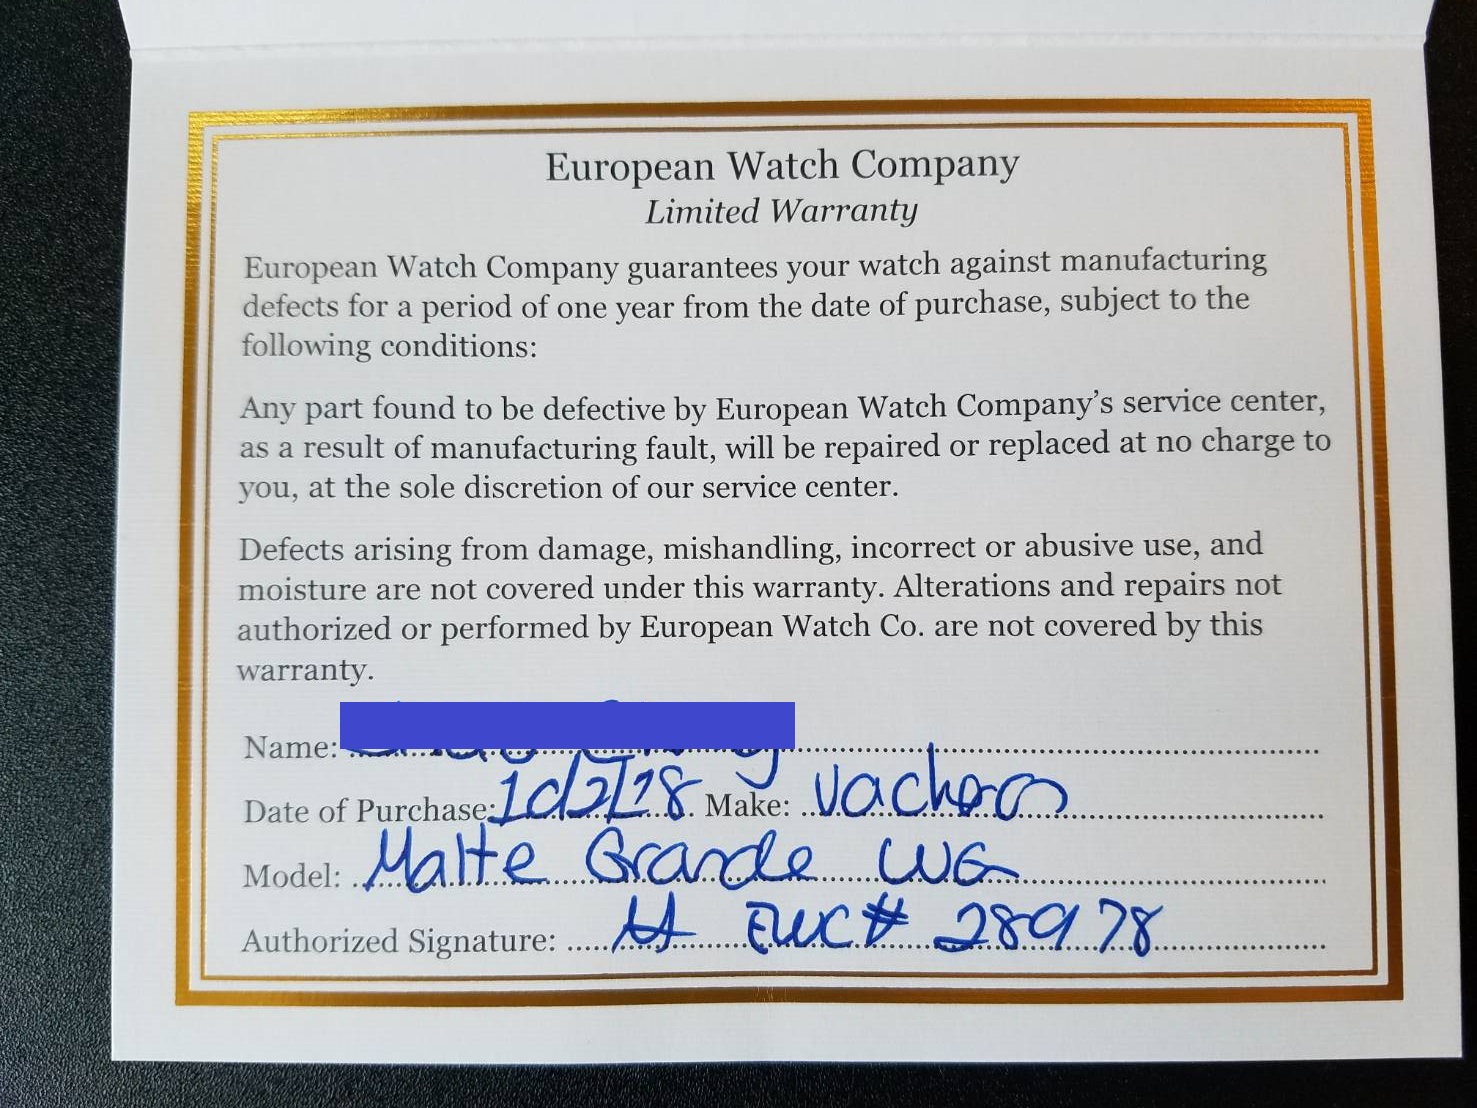 European Watch Company
Limited Warranty
European Watch Company guarantees your watch against manufacturing
defects for a period of one year from the date of purchase, subject to the
following conditions:
Any part found to be defective by European Watch Company's service center,
as a result of manufacturing fault, will be repaired or replaced at no charge to
you, at the sole discretion of our service center.
Defects arising from damage, mishandling, incorrect or abusive use, and
moisture are not covered under this warranty. Alterations and repairs not
authorized or performed by European Watch Co. are not covered by this
warranty.
Name:
Date of Purchase: Make: Vacheron
Model: Malte Grande WG
Authorized Signature: EWC# 28978